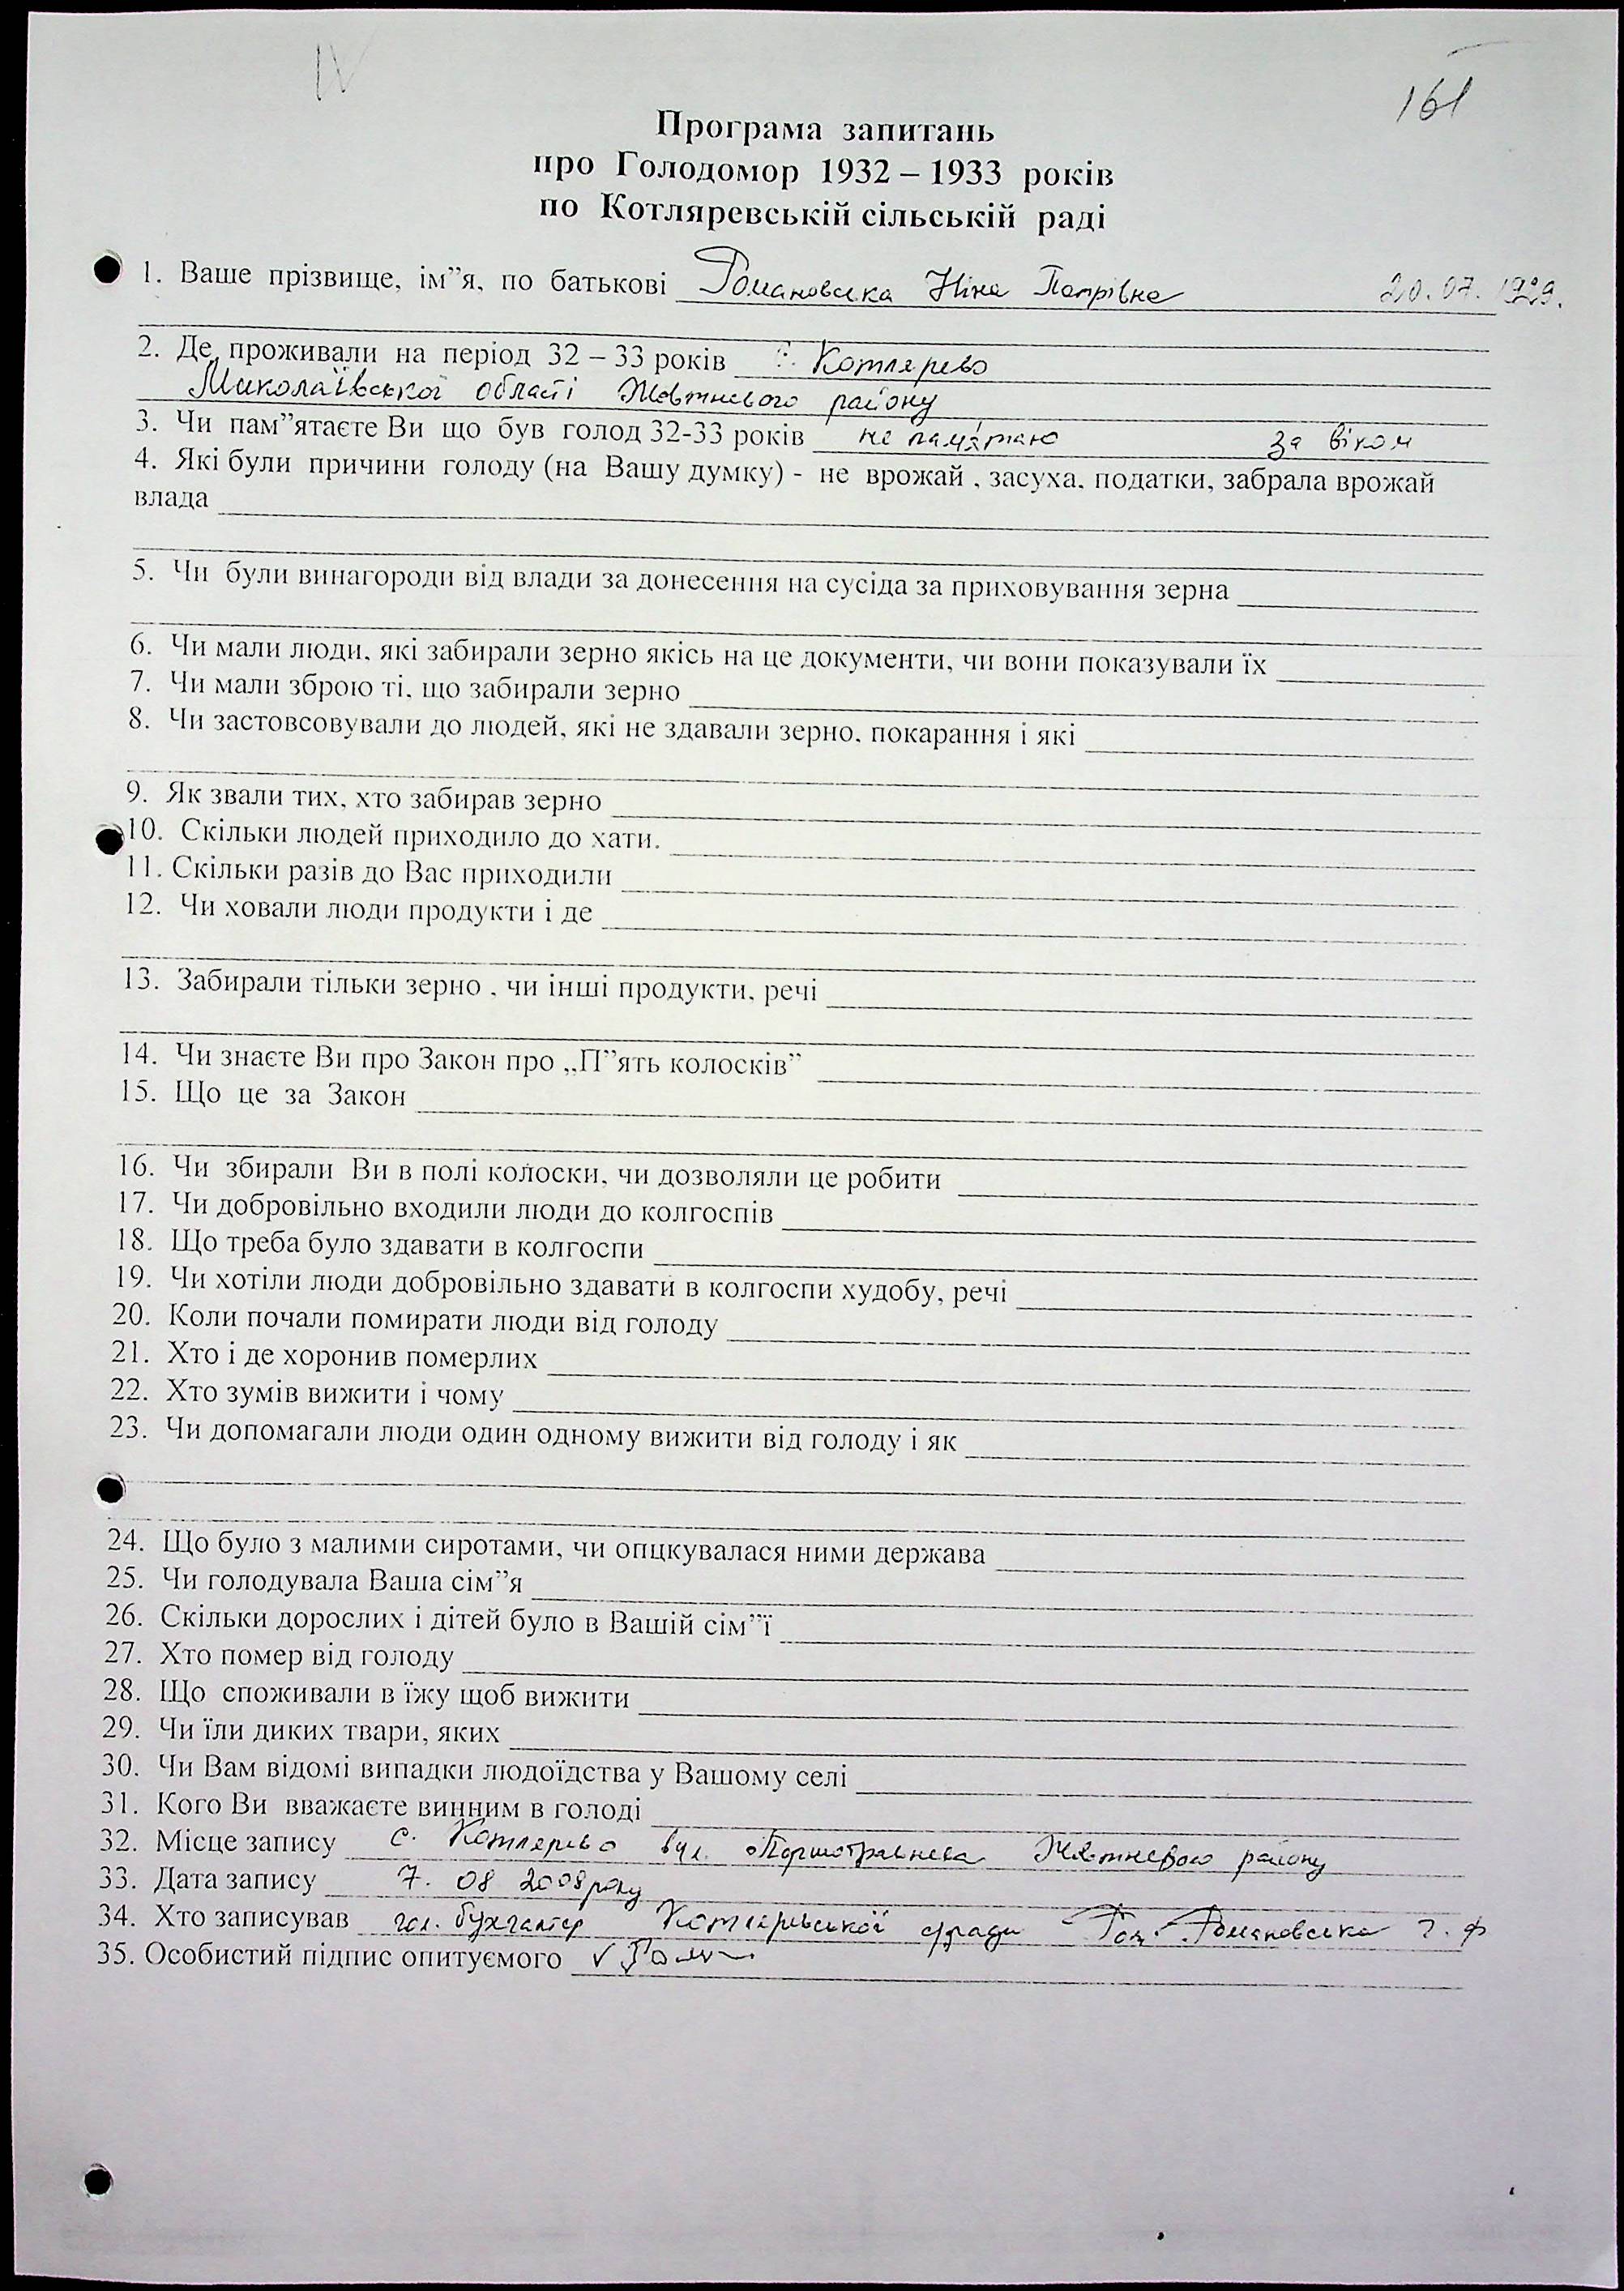 IV
161
Програма запитань
про Голодомор 1932 – 1933 років
по Котляревській сільській раді
1. Ваше прізвище, ім”я, по батькові Романовська Ніна Петрівна 20.07.1929.
2. Де проживали на період 32 – 33 років с. Котлярево
Миколаївської області Жовтневого району
3. Чи пам”ятаєте Ви що був голод 32-33 років не пам'ятаю за віком
4. Які були причини голоду (на Вашу думку) - не врожай , засуха, податки, забрала врожай
влада
5. Чи були винагороди від влади за донесення на сусіда за приховування зерна
6. Чи мали люди, які забирали зерно якісь на це документи, чи вони показували їх
7. Чи мали зброю ті, що забирали зерно
8. Чи застовсовували до людей, які не здавали зерно, покарання і які
9. Як звали тих, хто забирав зерно
10. Скільки людей приходило до хати.
11. Скільки разів до Вас приходили
12. Чи ховали люди продукти і де
13. Забирали тільки зерно , чи інші продукти, речі
14. Чи знаєте Ви про Закон про „П”ять колосків”
15. Що це за Закон
16. Чи збирали Ви в полі колоски, чи дозволяли це робити
17. Чи добровільно входили люди до колгоспів
18. Що треба було здавати в колгоспи
19. Чи хотіли люди добровільно здавати в колгоспи худобу, речі
20. Коли почали помирати люди від голоду
21. Хто і де хоронив померлих
22. Хто зумів вижити і чому
23. Чи допомагали люди один одному вижити від голоду і як
24. Що було з малими сиротами, чи опцкувалася ними держава
25. Чи голодувала Ваша сім”я
26. Скільки дорослих і дітей було в Вашій сім”ї
27. Хто помер від голоду
28. Що споживали в їжу щоб вижити
29. Чи їли диких твари, яких
30. Чи Вам відомі випадки людоїдства у Вашому селі
31. Кого Ви вважаєте винним в голоді
32. Місце запису с. Котлярево вул. Першотравнева Жовтневого району
33. Дата запису 7. 08 2008 року
34. Хто записував гол. бухгалтер Котляревської с/ради Романовська Г. Ф
35. Особистий підпис опитуємого